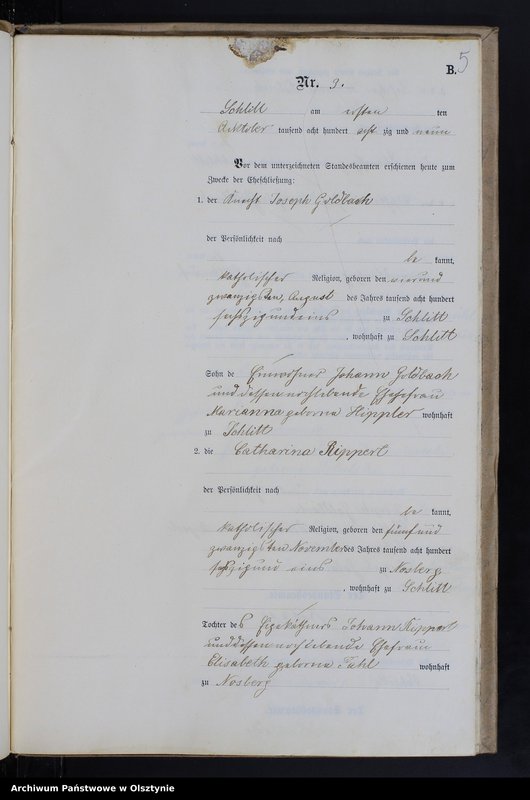 B. 5
Nr. 3.
Schlitt am ersten ten
Oktober tausend acht hundert acht zig und neun
Vor dem unterzeichneten Standesbeamten erschienen heute zum
Zwecke der Eheschließung:
1. der Knecht Joseph Goldbach
der Persönlichkeit nach
be kannt,
katholischer Religion, geboren den vierund
zwanzigsten, August des Jahres tausend acht hundert
sechszigundeins zu Schlitt
, wohnhaft zu Schlitt
Sohn de Einwohner Johann Goldbach
und dessen nochlebende Ehefrau
Marianna geborne Hippler wohnhaft
zu Schlitt
2. die Catharina Rippert
der Persönlichkeit nach
be kannt,
katholischer Religion, geboren den fünfund
zwanzigsten November des Jahres tausend acht hundert
sechszigund eins zu Nosberg
, wohnhaft zu Schlitt
Tochter des Johann Rippert
und dessen nochlebende Ehefrau
Elisabeth geborne wohnhaft
zu Nosberg
Archiwum Państwowe w Olsztynie